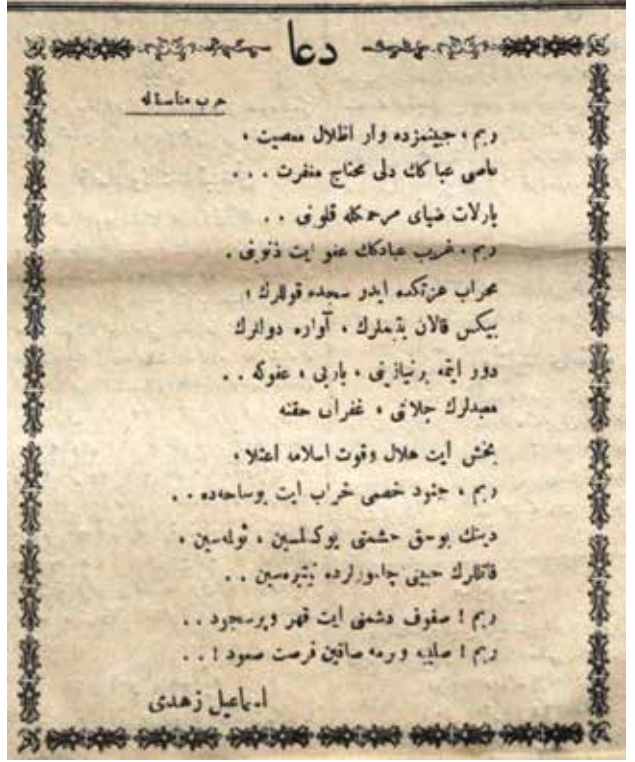 دعا
حرب مناسبتله
ربم ، جبینمزده وار اظلال معصیت ،
عاصی عبادك دلی محتاج مغفرت . . .
پارلات ضیای مرحمتكله قلوبی . .
ربم ، غریب عبادك عفو ایت ذنوبی .
محراب عزتكده ایدر سجده قوللرك ؛
بیكس قالان یتیملرك ، آواره دوللرك
دور ایتمه برنیازینی ، یاربی ، عفوكه . .
معبدلرك جلالنی ، غفران حقنه
بخش ایت هلال وقوت اسلامه اعتلا ،
ربم ، جنود خصمی خراب ایت بوساحه‌ده . .
دینك بوحق حشمتی یوكسلسین ، ئولمه‌سین ،
قاتللرك جبینی چامورلرده تیتره‌سین . .
ربم ! صفوف دشمنی ایت قهر وپرسجود . .
ربم ! صلیبه ویرمه صاقین فرصت صعود ! . .
اسماعیل زهدی